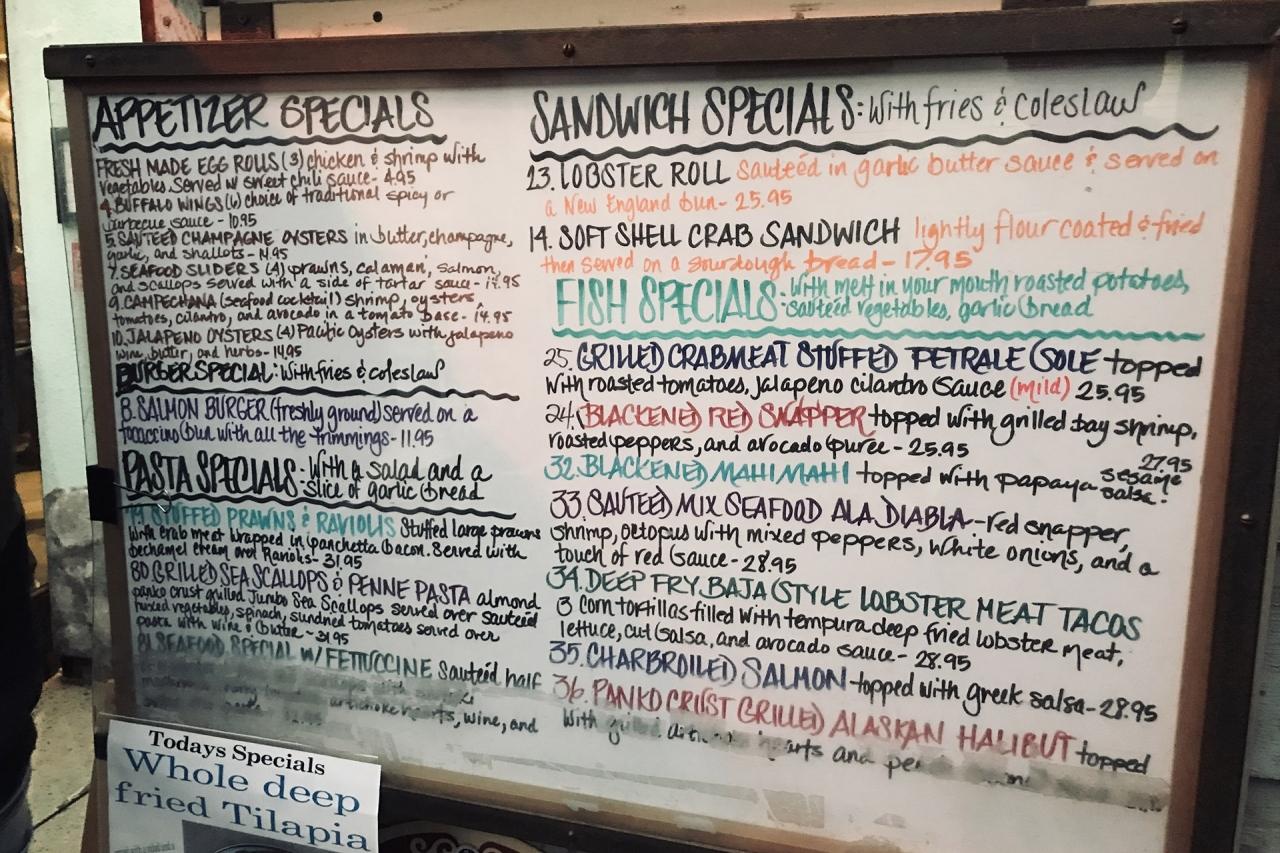 APPETIZER SPECIALS
FRESH MADE EGG ROLLS (3) chicken & shrimp with
vegetables. Served w/ sweet chili sauce - 4.95
4. BUFFALO WINGS (6) choice of traditional spicy or
barbecue sauce - 10.95
5. SAUTEED CHAMPAGNE OYSTERS in butter, champagne,
garlic, and shallots - 14.95
7. SEAFOOD SLIDERS (4) prawns, calamari, salmon,
and scallops served with a side of tartar sauce - 14.95
9. CAMPECHANA (seafood cocktail) shrimp, oysters,
tomatoes, cilantro, and avocado in a tomato base - 14.95
10. JALAPENO OYSTERS (4) Pacific Oysters with jalapeno
wine, butter, and herbs - 14.95
BURGER SPECIAL: with fries & coleslaw
8. SALMON BURGER (freshly ground) served on a
focaccino bun with all the trimmings - 11.95
PASTA SPECIALS: With a salad and a
slice of garlic bread
STUFFED PRAWNS & RAVIOLIS Stuffed large prawns
with crab meat wrapped in panchetta bacon. Served with
bechamel cream over Raviolis - 31.95
80. GRILLED SEA SCALLOPS & PENNE PASTA almond
panko crust grilled Jumbo Sea Scallops served over sauteed
mixed vegetables, spinach, sundried tomatoes served over
pasta with wine & butter - 31.95
81. SEAFOOD SPECIAL W/ FETTUCCINE Sauteéd half
artichoke hearts, wine, and
SANDWICH SPECIALS: With fries & coleslaw
13. LOBSTER ROLL Sauteéd in garlic butter sauce & served on
a New England bun - 25.95
14. SOFT SHELL CRAB SANDWICH lightly flour coated & fried
then served on a sourdough bread - 17.95
FISH SPECIALS: With melt in your mouth roasted potatoes,
sauteéd vegetables, garlic bread
25. GRILLED CRABMEAT STUFFED PETRALE SOLE topped
with roasted tomatoes, jalapeno cilantro sauce (mild) 25.95
24. BLACKENED RED SNAPPER topped with grilled bay shrimp,
roasted peppers, and avocado puree - 25.95
32. BLACKENED MAHI MAHI topped with papaya sesame salsa! 27.95
33. SAUTEED MIX SEAFOOD ALA DIABLA - red snapper,
shrimp, octopus with mixed peppers, white onions, and a
touch of red sauce - 28.95
34. DEEP FRY BAJA STYLE LOBSTER MEAT TACOS
3 corn tortillas filled with tempura deep fried lobster meat,
lettuce, cut salsa, and avocado sauce - 28.95
35. CHARBROILED SALMON topped with greek salsa - 28.95
36. PANKO CRUST GRILLED ALASKAN HALIBUT topped
with arts and
Todays Specials
Whole deep
fried Tilapia